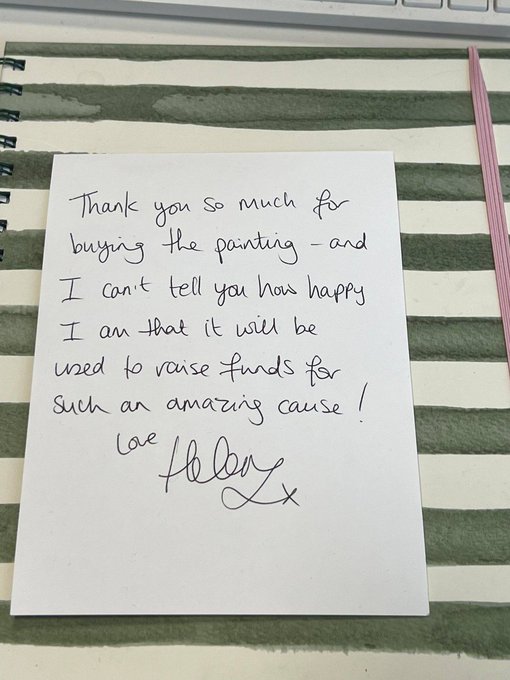 Thank you so much for
buying the painting – and
I can't tell you how happy
I am that it will be
used to raise funds for
such an amazing cause!
Love
Helen x